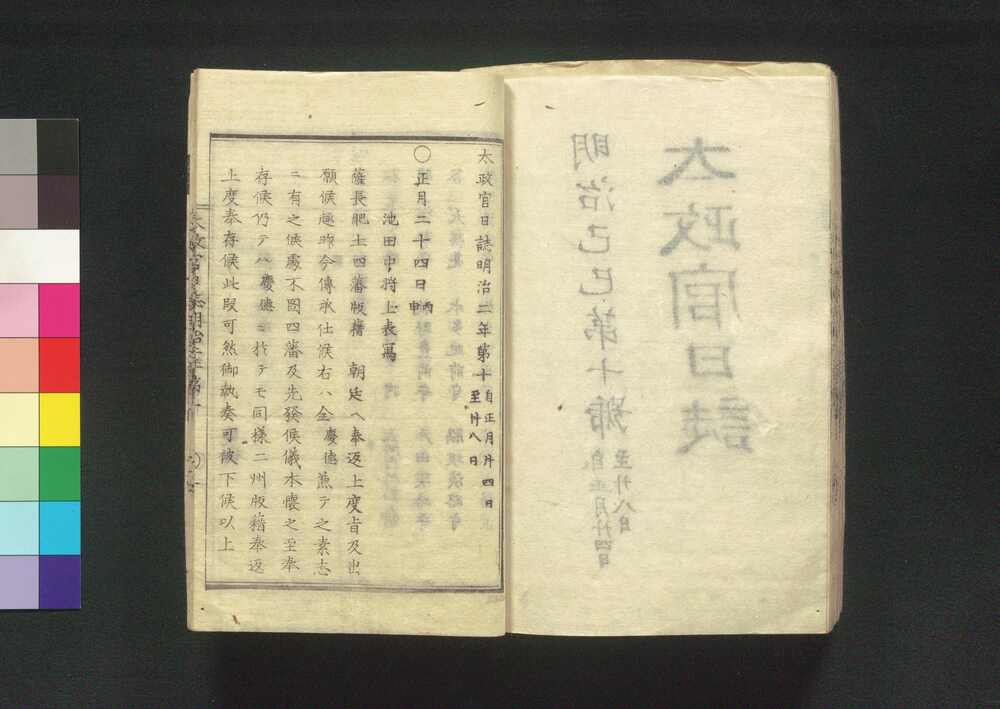 太政官日誌
明治己巳第十號
自正月廿四日
至廿八日
太政官日誌明治二年第十
自正月廿四日
至廿八日
○正月二十四日丙申
池田中將上表寫
薩長肥土四藩版籍 朝廷ヘ奉返上度旨及出
願候趣昨今傳承仕候右ハ全慶德兼テ之素志
ニ有之候處不圖四藩及先發候儀本懷之至奉
存候仍テハ慶德ニ於テモ同樣二州版籍奉返
上度奉存候此段可然御執奏可被下候以上